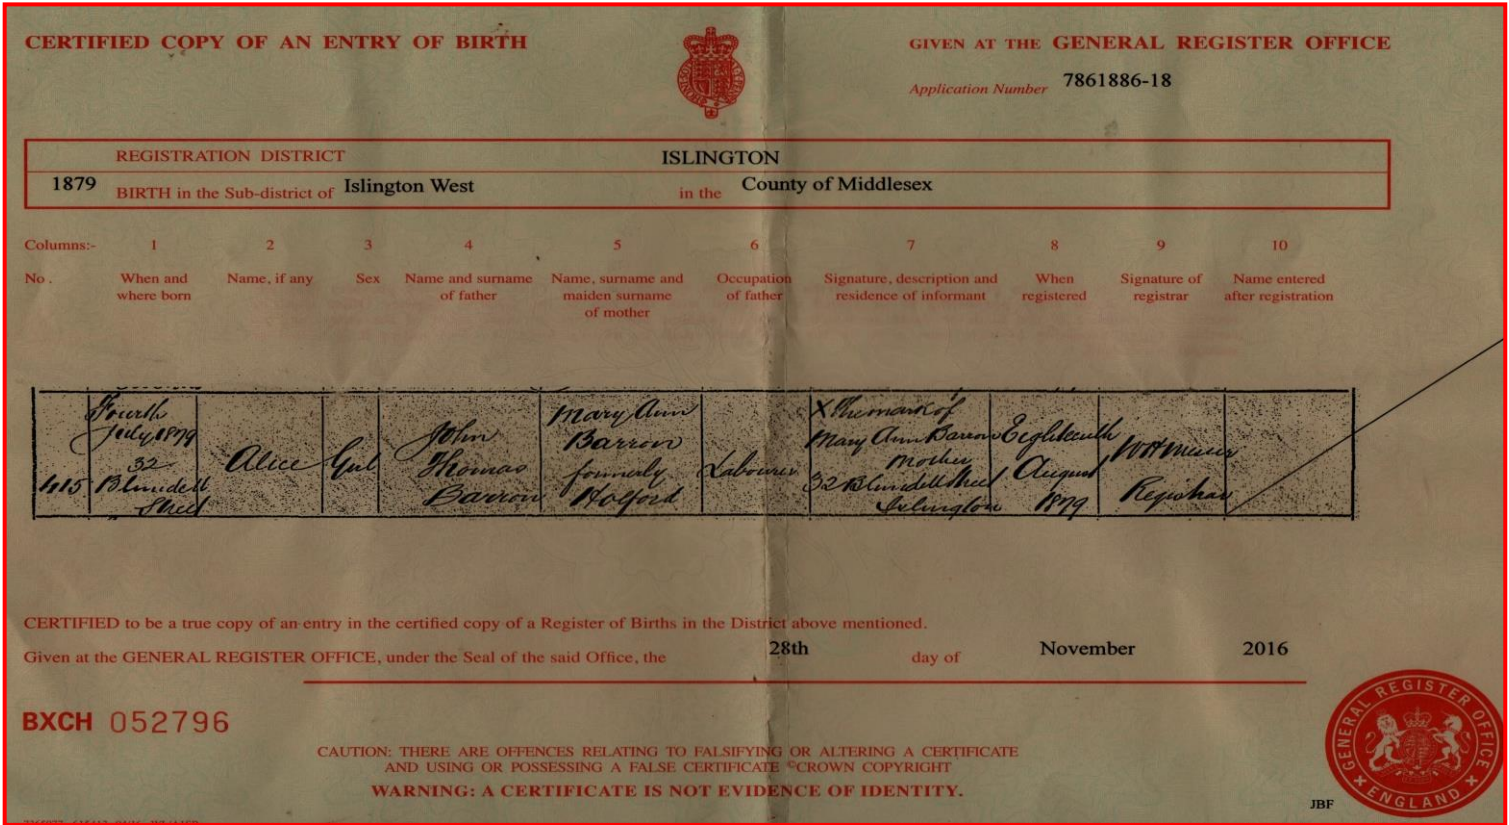 CERTIFIED COPY OF AN ENTRY OF BIRTH
GIVEN AT THE GENERAL REGISTER OFFICE
Application Number 7861886-18
REGISTRATION DISTRICT ISLINGTON
1879 BIRTH in the Sub-district of Islington West in the County of Middlesex
Columns:- 1 2 3 4 5 6 7 8 9 10
No. When and where born
Name, if any
Sex
Name and surname of father
Name, surname and maiden surname of mother
Occupation of father
Signature, description and residence of informant
When registered
Signature of registrar
Name entered after registration
415
Fourth
July 1879
32
Blundell
Street
Alice
Girl
John
Thomas
Barron
Mary Ann
Barron
formerly
Holford
Labourer
X The mark of
Mary Ann Barron
Mother
32 Blundell Street
Islington
Eighteenth
August
1879
Registrar
CERTIFIED to be a true copy of an entry in the certified copy of a Register of Births in the District above mentioned.
Given at the GENERAL REGISTER OFFICE, under the Seal of the said Office, the 28th day of November 2016
BXCH 052796
CAUTION: THERE ARE OFFENCES RELATING TO FALSIFYING OR ALTERING A CERTIFICATE
AND USING OR POSSESSING A FALSE CERTIFICATE ©CROWN COPYRIGHT
WARNING: A CERTIFICATE IS NOT EVIDENCE OF IDENTITY.
GENERAL REGISTER OFFICE
ENGLAND
JBF